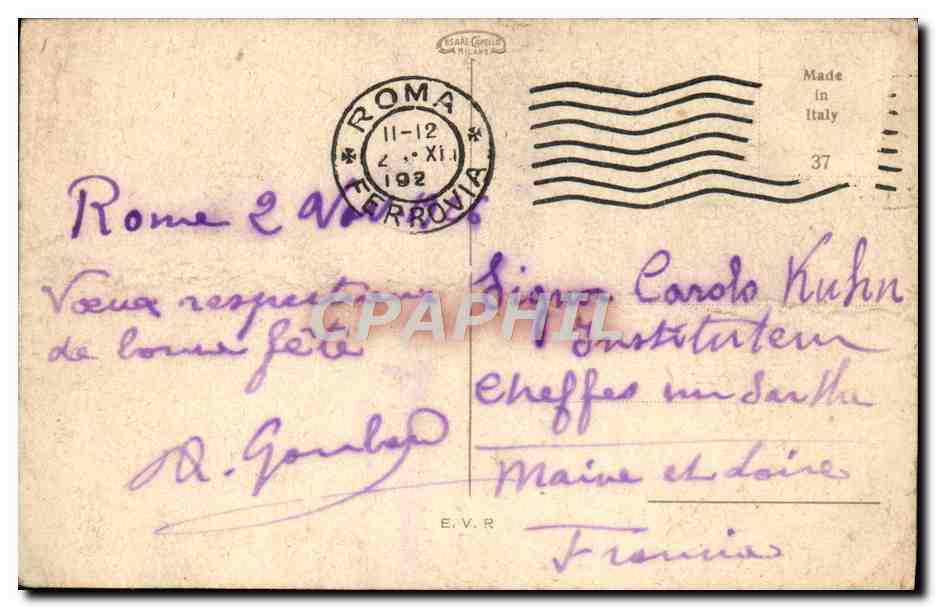 CESARE CAPELLO
MILANO
ROMA
11-12
2 XI
192
FERROVIA
Made
in
Italy
37
Rome 2
Vœux respectueux
de bonne fête
Signor Carolo Kuhn
Instituteur
Cheffes sur Sarthe
Maine et Loire
Francia
E. V. R
CPAPHIL